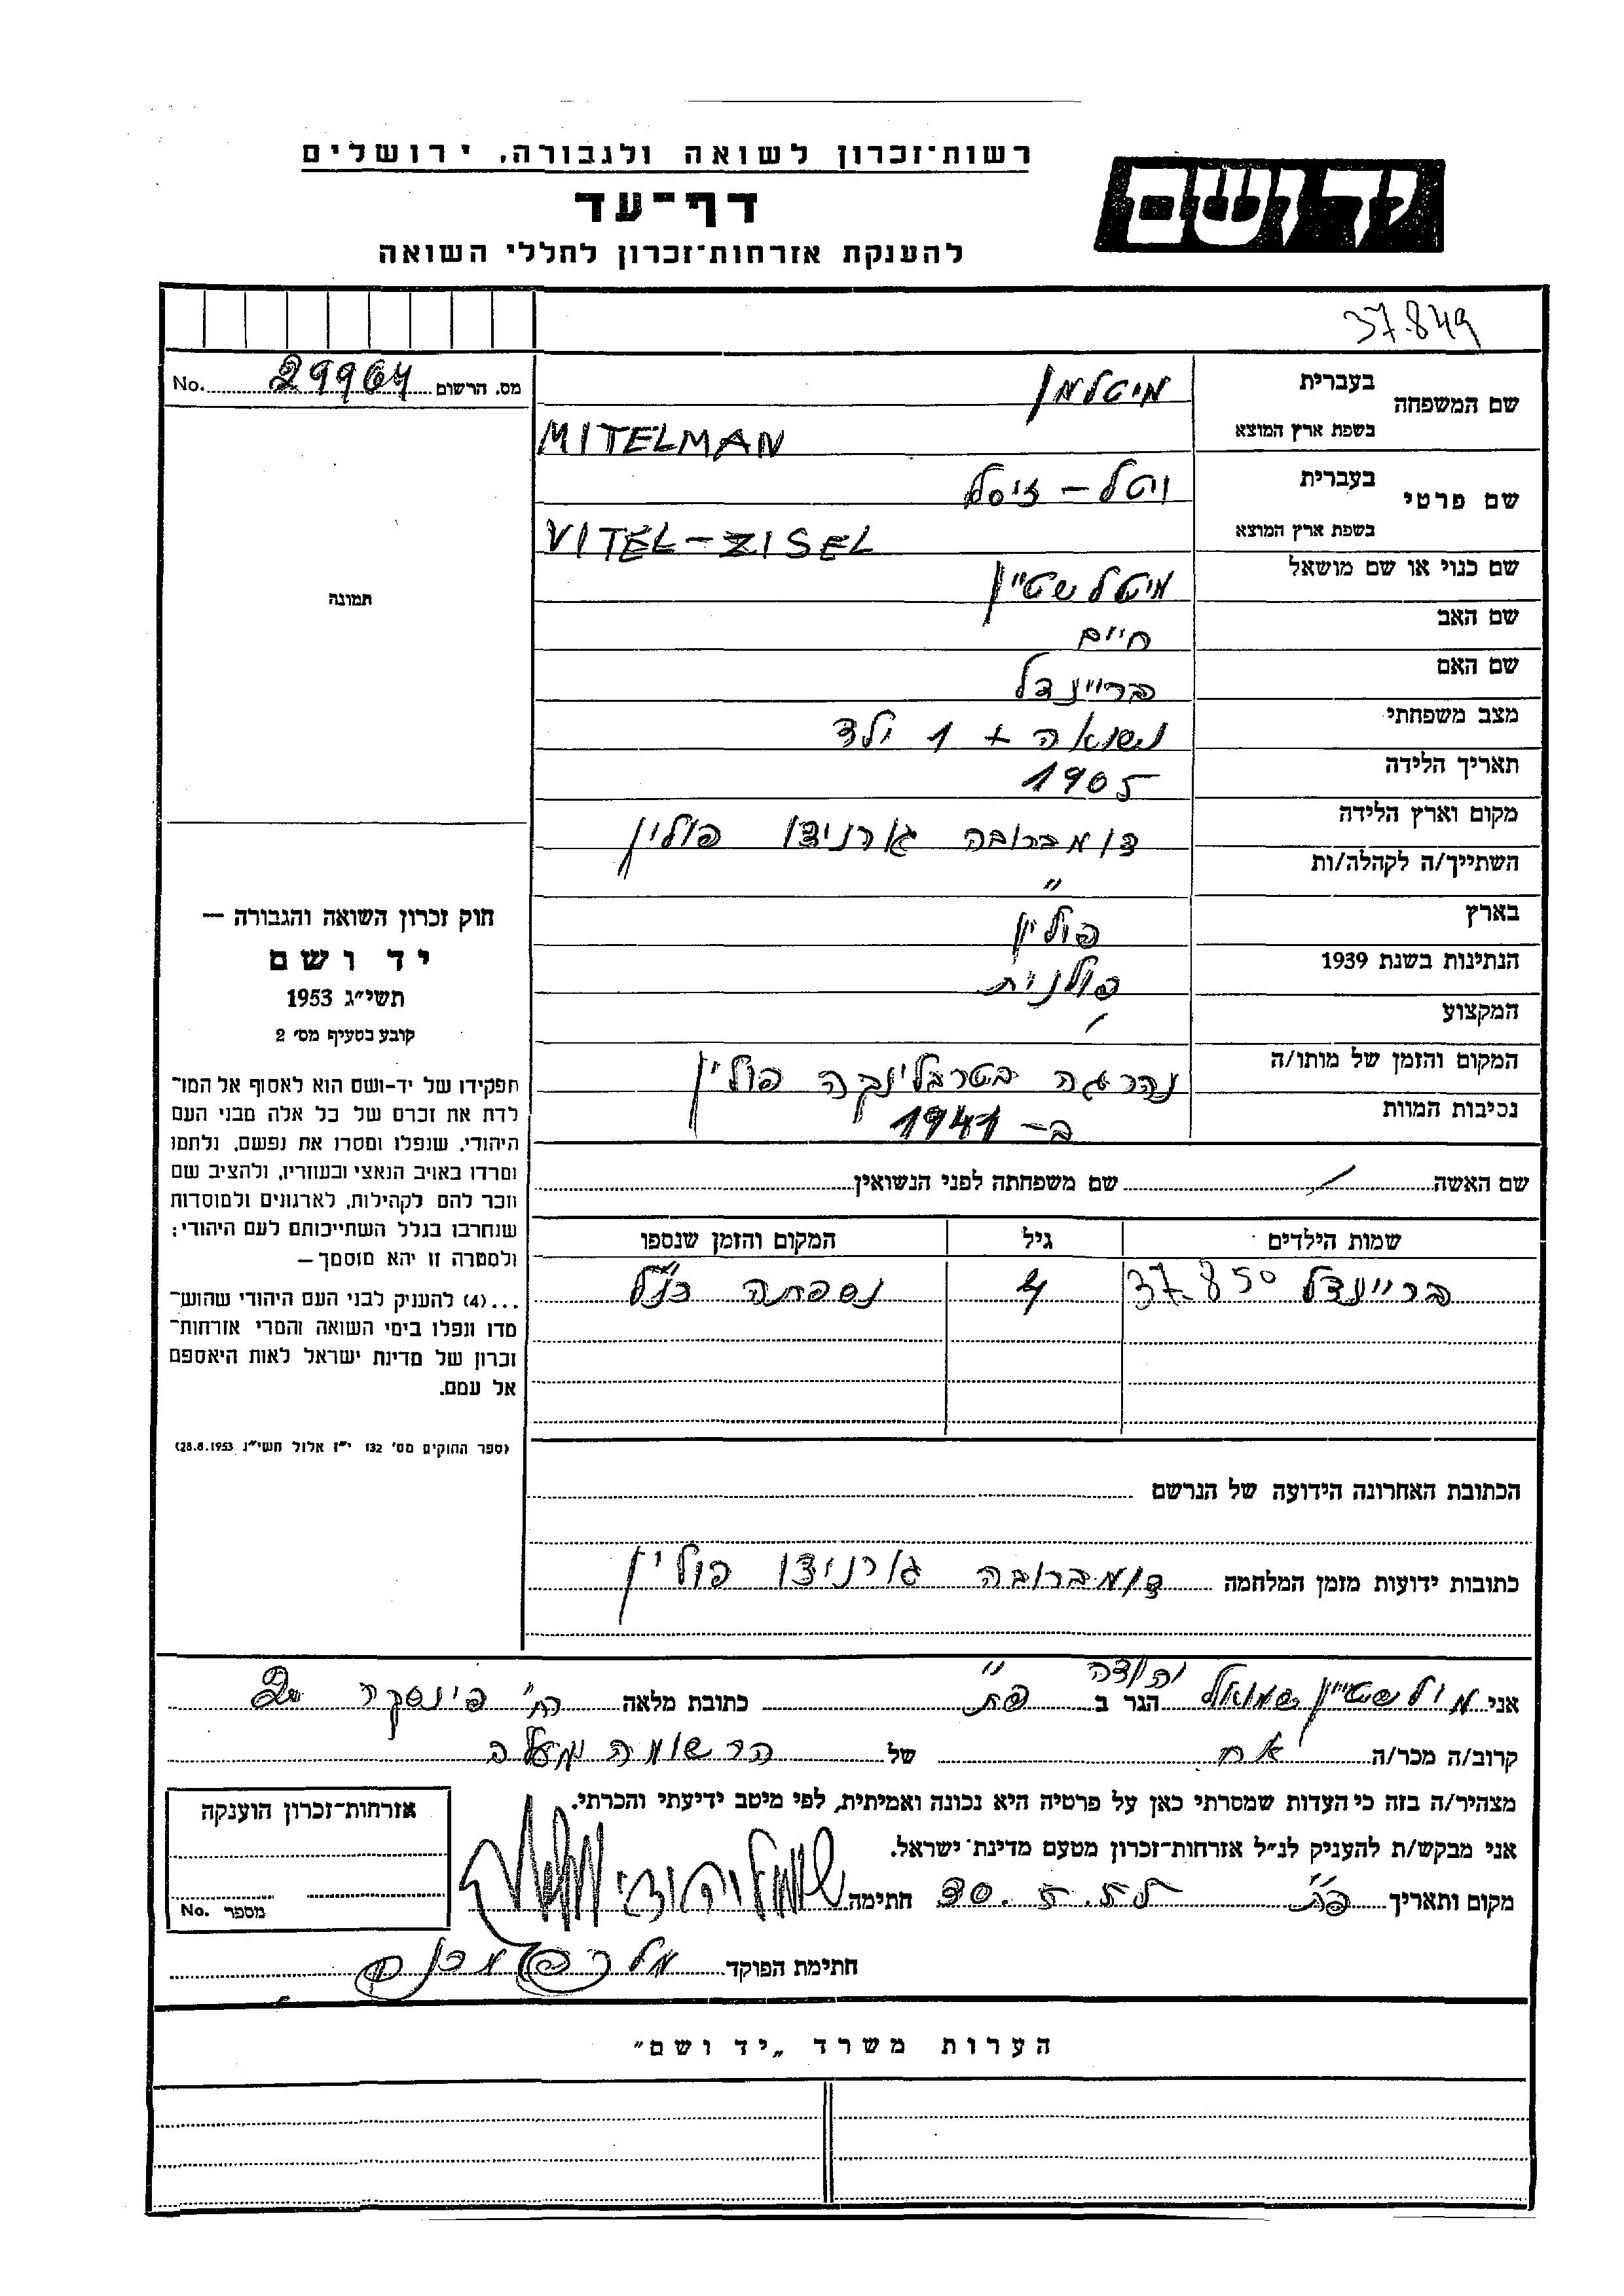 רשות־זכרון לשואה ולגבורה, ירושלים
יד ושם
דף־עד
להענקת אזרחות־זכרון לחללי השואה
37.849
מס. הרשום 29964 No.
שם המשפחה
בעברית מיטלמן
בשפת ארץ המוצא MITELMAN
שם פרטי
בעברית ויטל – זיסל
בשפת ארץ המוצא VITEL-ZISEL
שם כנוי או שם מושאל מיטלשטיין
שם האב חיים
שם האם בריינדל
מצב משפחתי נשואה + 1 ילד
תאריך הלידה 1905
מקום וארץ הלידה דומברובה גורניצו פולין
השתייך/ה לקהלה/ות "
בארץ פולין
הנתינות בשנת 1939 פולנית
המקצוע /
המקום והזמן של מותו/ה נהרגה בטרבלינקה פולין
נסיבות המוות ב– 1941
שם האשה / שם משפחתה לפני הנשואין
שמות הילדים גיל המקום והזמן שנספו
בריינדל 37850 4 נספתה כנ"ל
הכתובת האחרונה הידועה של הנרשם
כתובות ידועות מזמן המלחמה דומברובה גורניצו פולין
תמונה
חוק זכרון השואה והגבורה —
יד ושם
תשי"ג 1953
קובע בסעיף מס' 2
תפקידו של יד-ושם הוא לאסוף אל המו־
לדת את זכרם של כל אלה מבני העם
היהודי, שנפלו ומסרו את נפשם, נלחמו
ומרדו באויב הנאצי ובעוזריו, ולהציב שם
וזכר להם לקהילות, לארגונים ולמוסדות
שנחרבו בגלל השתייכותם לעם היהודי;
ולמטרה זו יהא מוסמך —
...(4) להעניק לבני העם היהודי שהוש־
מדו ונפלו בימי השואה והמרי אזרחות־
זכרון של מדינת ישראל לאות היאספם
אל עמם.
(ספר החוקים מס' 132 י"ז אלול תשי"ג 28.8.1953)
יהודה
אני שמואל הגר ב פ"ת כתובת מלאה רח' פינסקר
קרוב/ה מכר/ה אח של הרשומה מעלה
מצהיר/ה בזה כי העדות שמסרתי כאן על פרטיה היא נכונה ואמיתית, לפי מיטב ידיעתי והכרתי.
אני מבקש/ת להעניק לנ"ל אזרחות־זכרון מטעם מדינת ישראל.
מקום ותאריך פ"ת חתימה
חתימת הפוקד
אזרחות־זכרון הוענקה
מספר No.
הערות משרד „יד ושם"